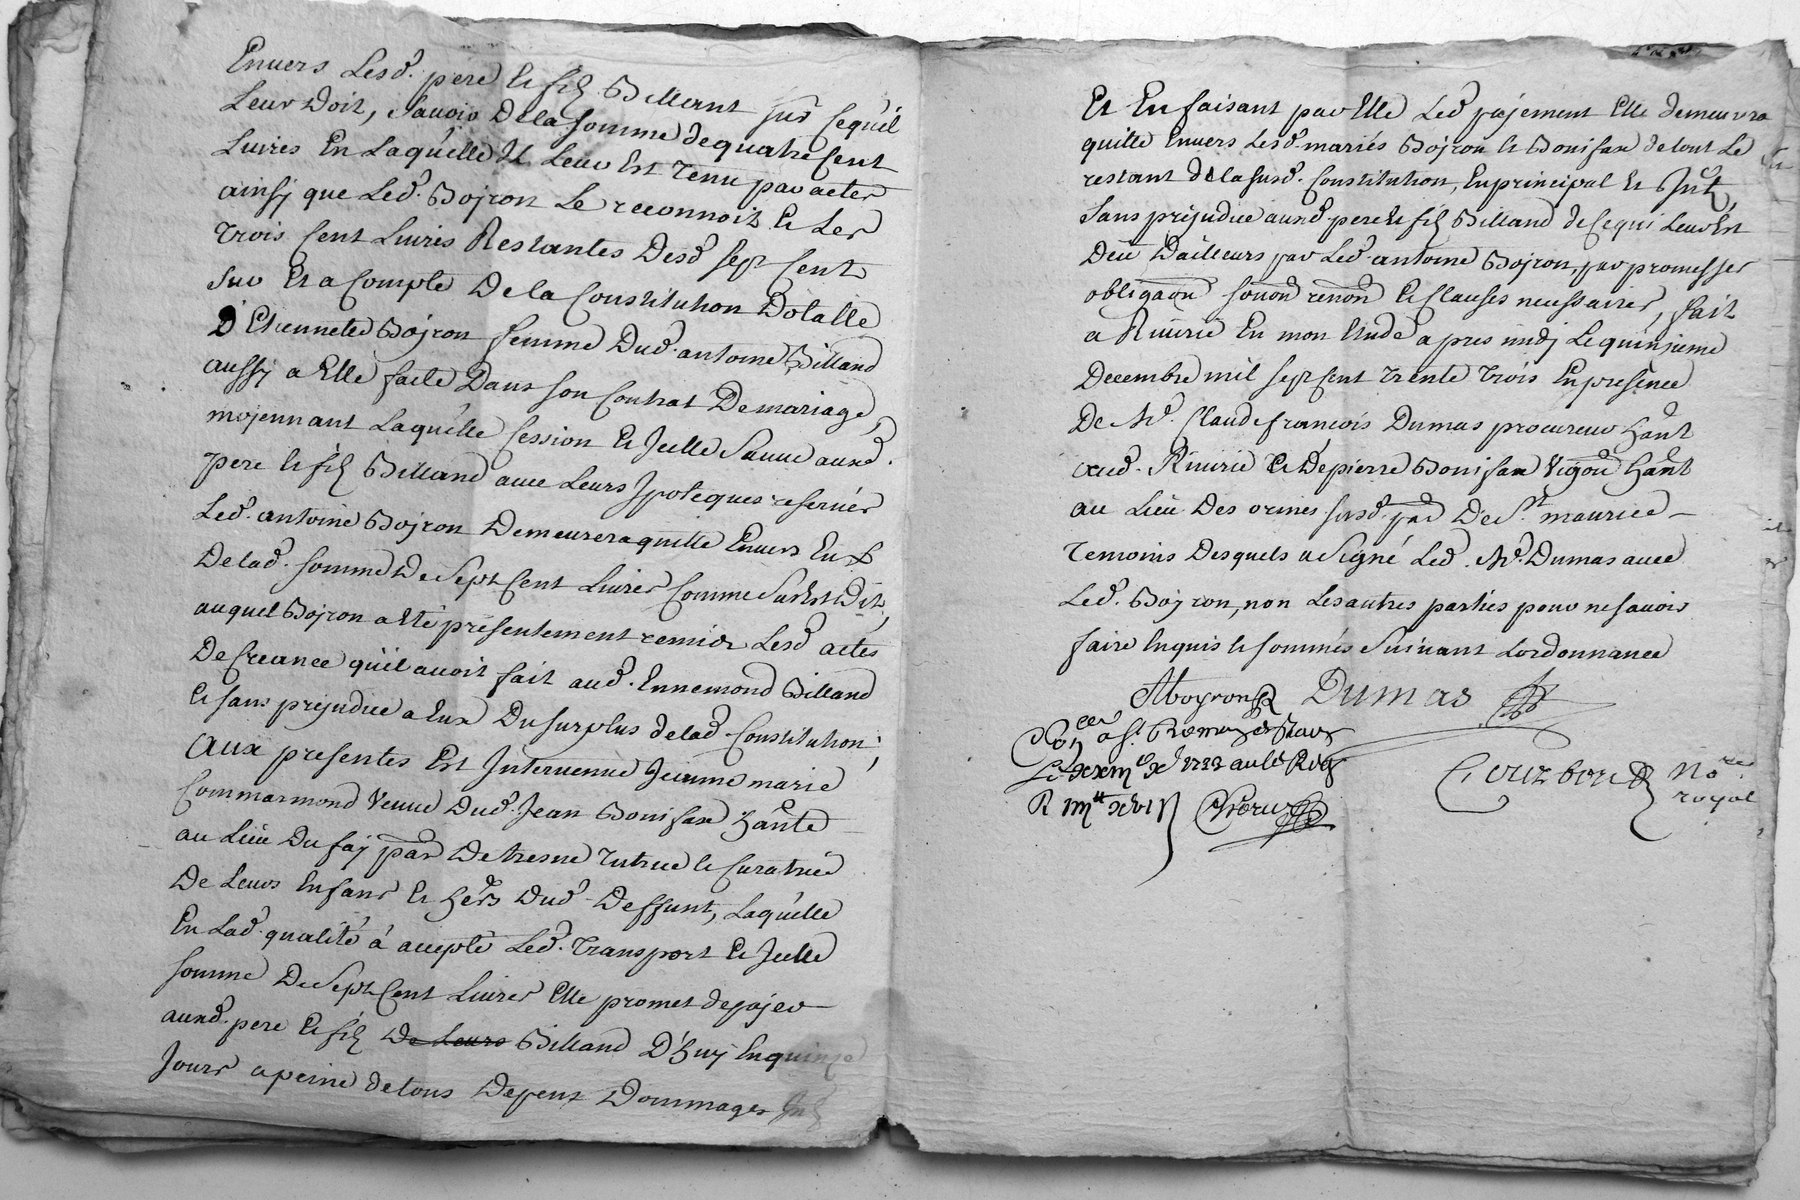 Envers Lesd. pere et fils Billand sur cequil
Leur Doit, scavoir De la somme de quatre cent
Livres En Laquelle Il Leur Est Tenu par actes
ainsy que Led. Bojron Le reconnoit et Les
Trois Cent Livres Restantes Desd. sept Cent
sur Et a Compte De la Constitution Dotalle
D'Etiennete Bojron femme Dud. antoine Billand
aussy a Elle faite Dans son Contrat De mariage,
mojennant Laquelle Cession et Jcelle Sauve auxd.
pere et fils Billand avec Leurs Jpoteques reservés
Led. antoine Bojron Demeurera quitte Envers Eux
De lad. somme De Sept Cent Livres Comme Sus Est Dit,
auquel Bojron a Eté présentement remis Lesd. actes
De Creance quil avoit fait aud. Ennemond Billand
et sans préjudice a Eux Du surplus de lad. Constitution;
aux presentes Est Intervenue Jeanne marie
Commarmond Veuve Dud. Jean Bonifax hante
au Lieu Du faj par De tresne Tutrice et Curatrice
De Leurs Enfans et hers Dud. Deffunt, Laquelle
En Lad. qualité á accepté Led. Transport et Jcelle
somme De Sept Cent Livres Elle promet de pajer
auxd. pere et fils De Leurs Billand D'huj En quinze
Jours a peine de tous Depens Dommages Jnts
Et En faisant par Elle Led. pajement Elle demeurera
quitte Envers Lesd. mariés Bojron et Bonifax de tout Le
restant De la susd. Constitution, En principal et Jnts,
sans prejudice auxd. pere et fils Billand de Cequi Leur Est
Deu D'ailleurs par Led. antoine Bojron, par promesses
obligaon soumon renon et Clauses necessaires, fait
a Riverie En mon Etude a pres midj Le quinzieme
Decembre mil sept Cent Trente Trois En presence
De Me. Claude francois Dumas procureur hant
aud. Riverie et De pierre Bonifax Vigon hant
au Lieu Des ormes susd. par De St. maurice
Temoins Desquels a Signé Led. Me. Dumas avec
Led. Bojron, non Les autres parties pour ne savoir
faire Enquis et sommés Suivant Lordonnance
ABoyron Dumas
a St.
1733
royal